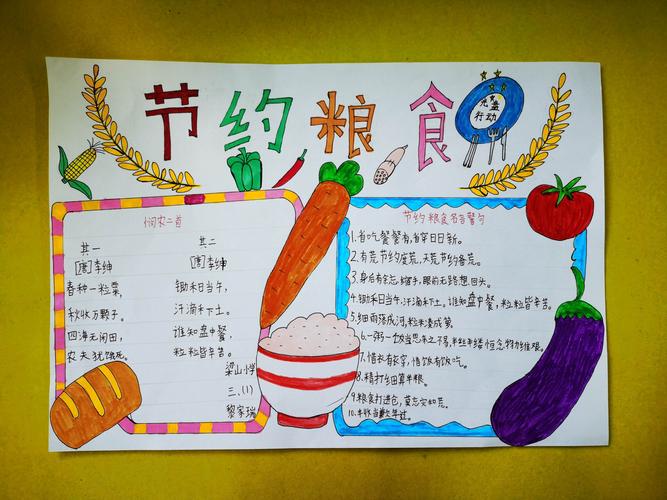 节约粮食
光盘
行动
悯农二首
其一
[唐]李绅
春种一粒粟,
秋收万颗子。
四海无闲田,
农夫犹饿死。
其二
[唐]李绅
锄禾日当午,
汗滴禾下土。
谁知盘中餐,
粒粒皆辛苦。
梁山
三、(1)
黎家瑞
节约粮食名言警句
1.省吃餐餐有,省穿日日新。
2.有荒节约度荒,无荒节约备荒。
3.身后有余忘缩手,眼前无路想回头。
4.锄禾日当午,汗滴禾下土。谁知盘中餐,粒粒皆辛苦。
5.细雨落成河,粒米凑成箩。
6.一粥一饭当思来之不易,半丝半缕恒念物力维艰。
7.惜衣有衣穿,惜饭有饭吃。
8.精打细算半年粮。
9.粮食打进仓,莫忘灾和荒。
10.丰收当歉年过。